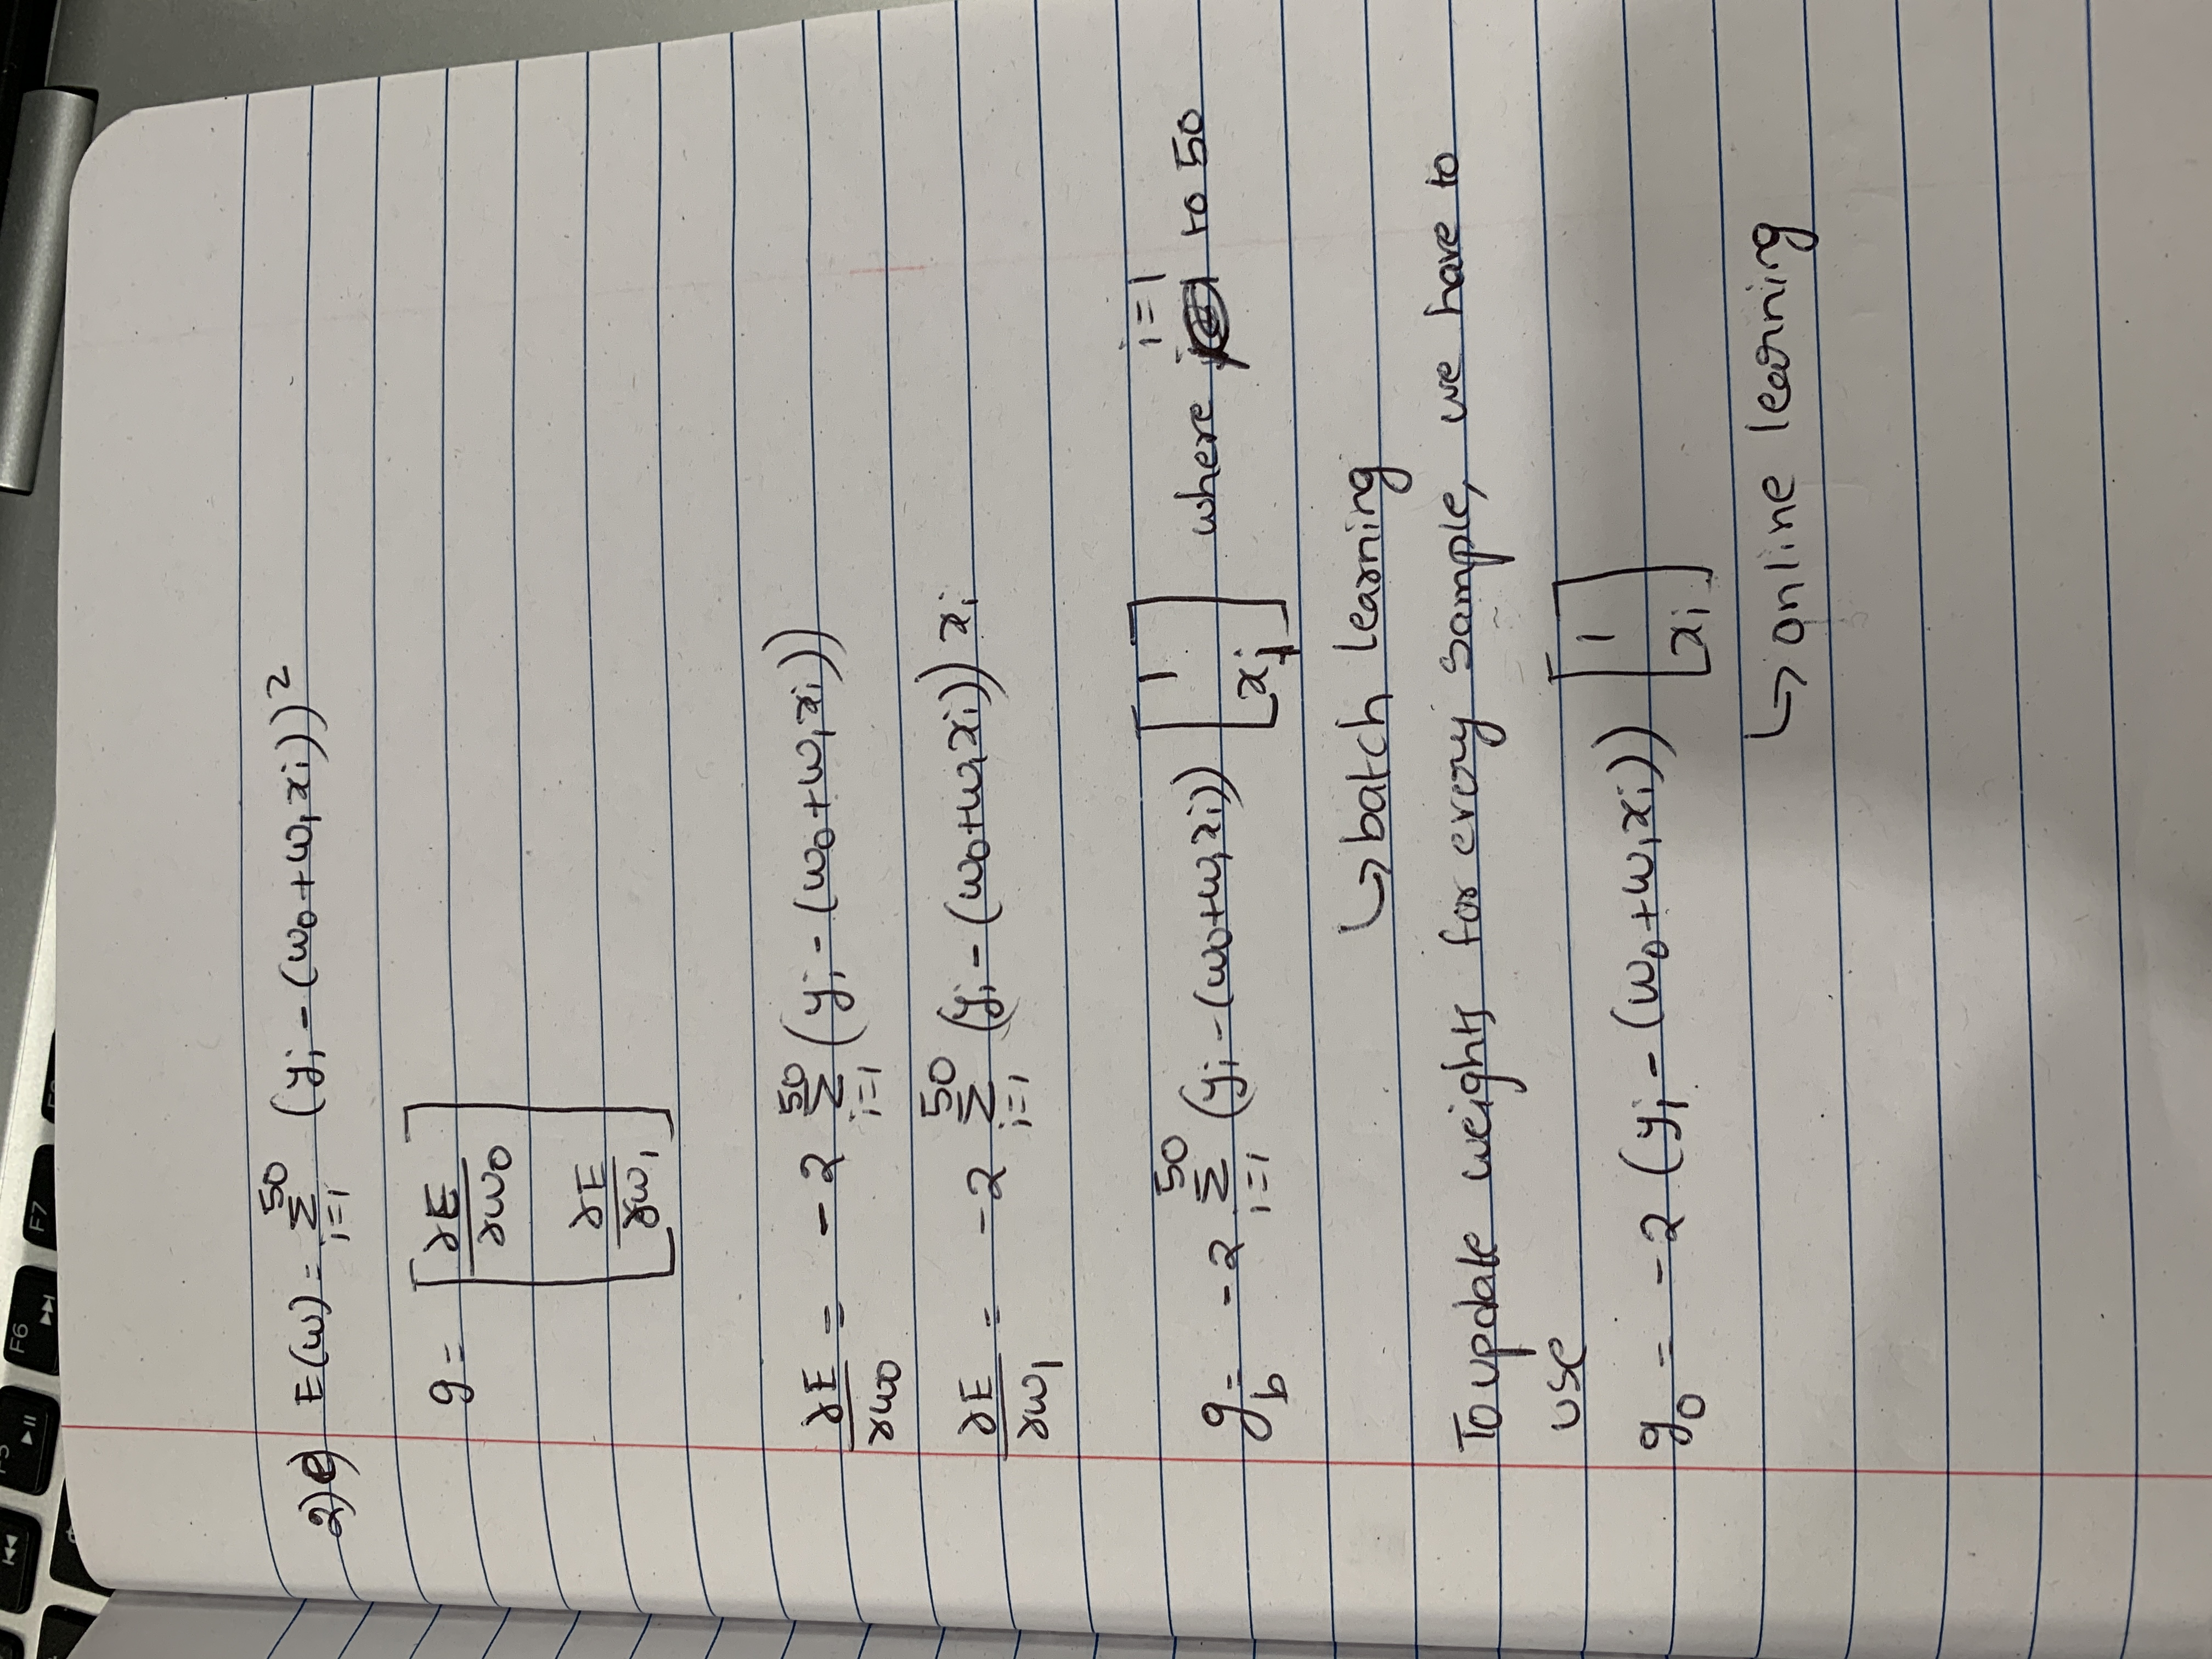 F5
F6
F7
2)e) E(w) = Σ_{i=1}^{50} (y_i - (w_0 + w_1 x_i))^2
g = [ ∂E/∂w_0
∂E/∂w_1 ]
∂E/∂w_0 = -2 Σ_{i=1}^{50} (y_i - (w_0 + w_1 x_i))
∂E/∂w_1 = -2 Σ_{i=1}^{50} (y_i - (w_0 + w_1 x_i)) x_i
g_b = -2 Σ_{i=1}^{50} (y_i - (w_0 + w_1 x_i)) [ 1 x_i ] where i=1 to 50
↳ batch learning
To update weights for every sample, we have to
use
g_0 = -2 (y_i - (w_0 + w_1 x_i)) [ 1 x_i ]
↳ online learning